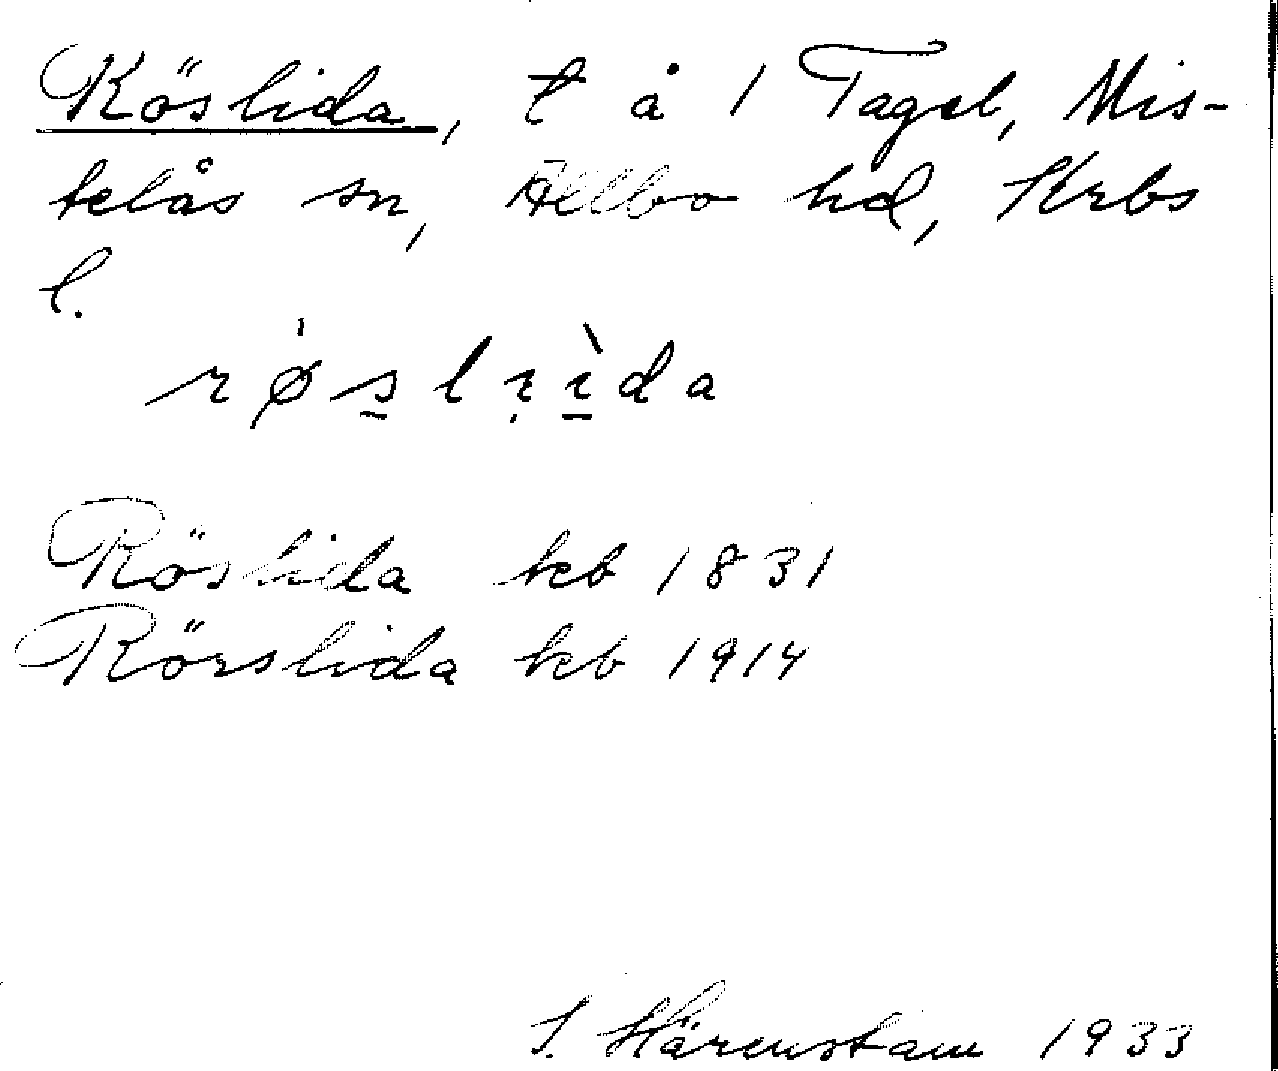 Röslida, t å 1 Tagel, Mis-
telås sn, Allbo hd, Krbs
l.
rǿslıı̀da
Röslida kb 1831
Rörslida kb 1914
S. Härenstam 1933